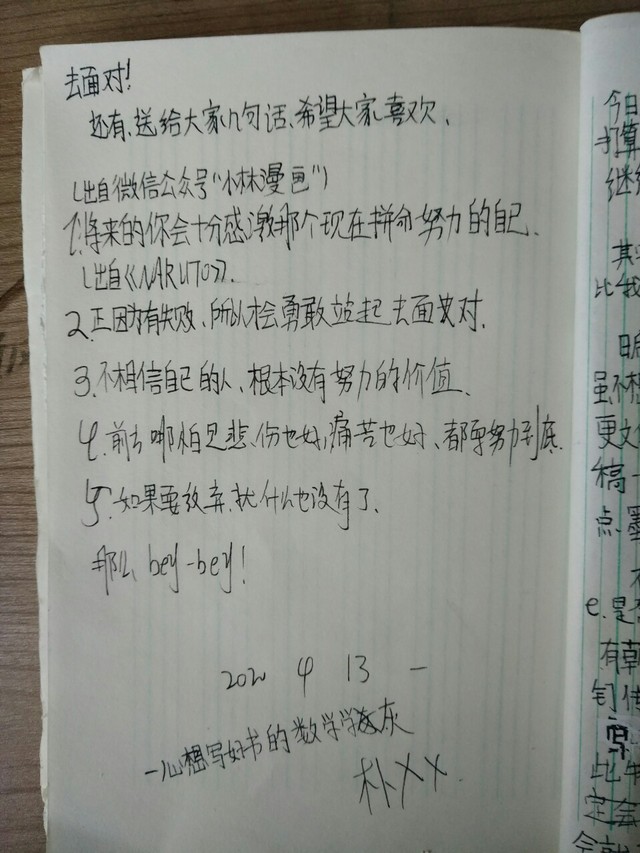 去面对!
还有、送给大家几句话、希望大家喜欢.
(出自微信公众号“小林漫画”)
1.将来的你会十分感激那个现在拼命努力的自己.
(出自《NARUTO》).
2.正因为有失败、所以才会勇敢站起去面对.
3.不相信自己的人、根本没有努力的价值.
4.前方哪怕是悲伤也好,痛苦也好、都要努力到底.
5.如果要放弃.就什么也没有了.
那么、bey-bey!
2020 4 13 一
一心想写好书的数学学渣灰
朴XX.
今日
打算
继续
其实
比我
日后
虽不想
更文
稿一
点.墨
不
e.是否
有朝
钉传
比
定会
会就